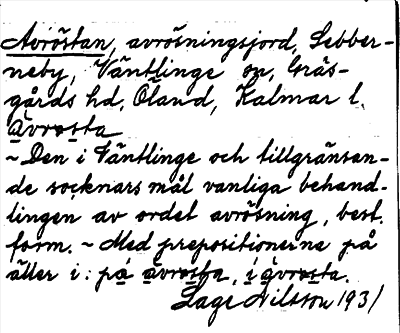 Avröstan, avrösningsjord, Sebber-
neby, Väntlinge sn, Gräs-
gårds hd, Öland, Kalmar l.
àvrøsta
~ Den i Väntlinge och tillgränsan-
de socknars mål vanliga behand-
lingen av ordet avrösning, best.
form. ~ Med prepositionerna på
äller i: på àvrøsta, i àvrøsta.
Lage Nilsson 1931